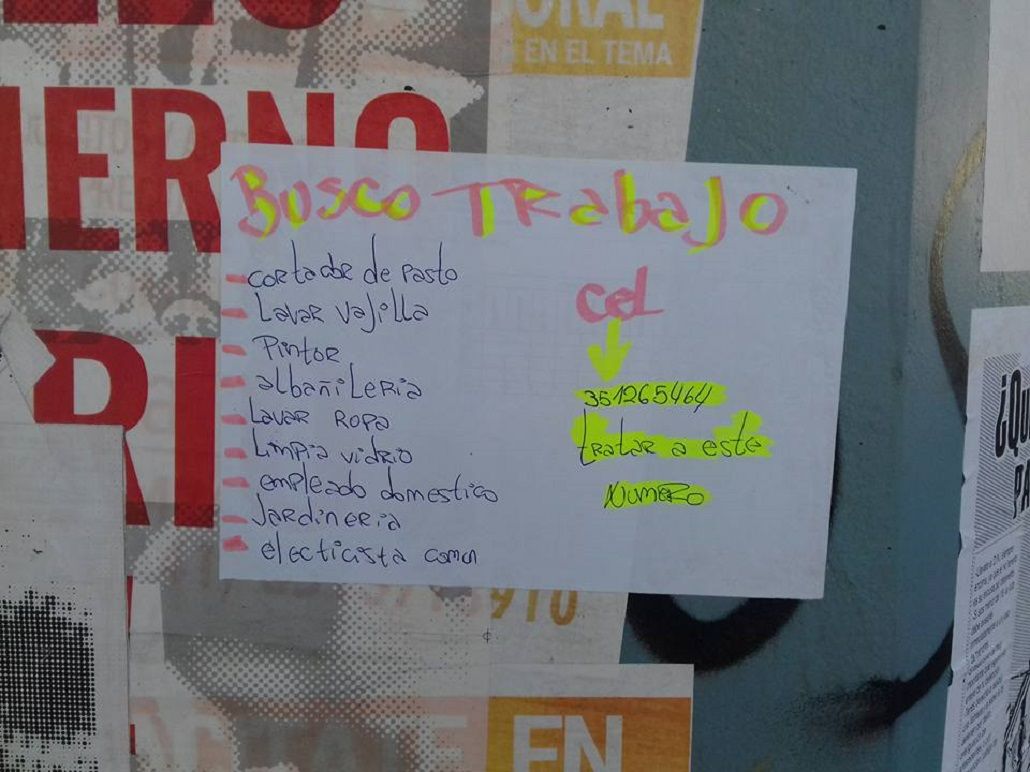 ORAL
EN EL TEMA
IERNO
BUSCO TRabaJO
- cortador de pasto
- Lavar vajilla
- Pintor
- albañileria
- Lavar ropa
- Limpia vidrio
- empleado domestico
- Jardineria
- electicista comun
CeL
351265464
tratar a este
NUMERO
¿QU
PA
EN